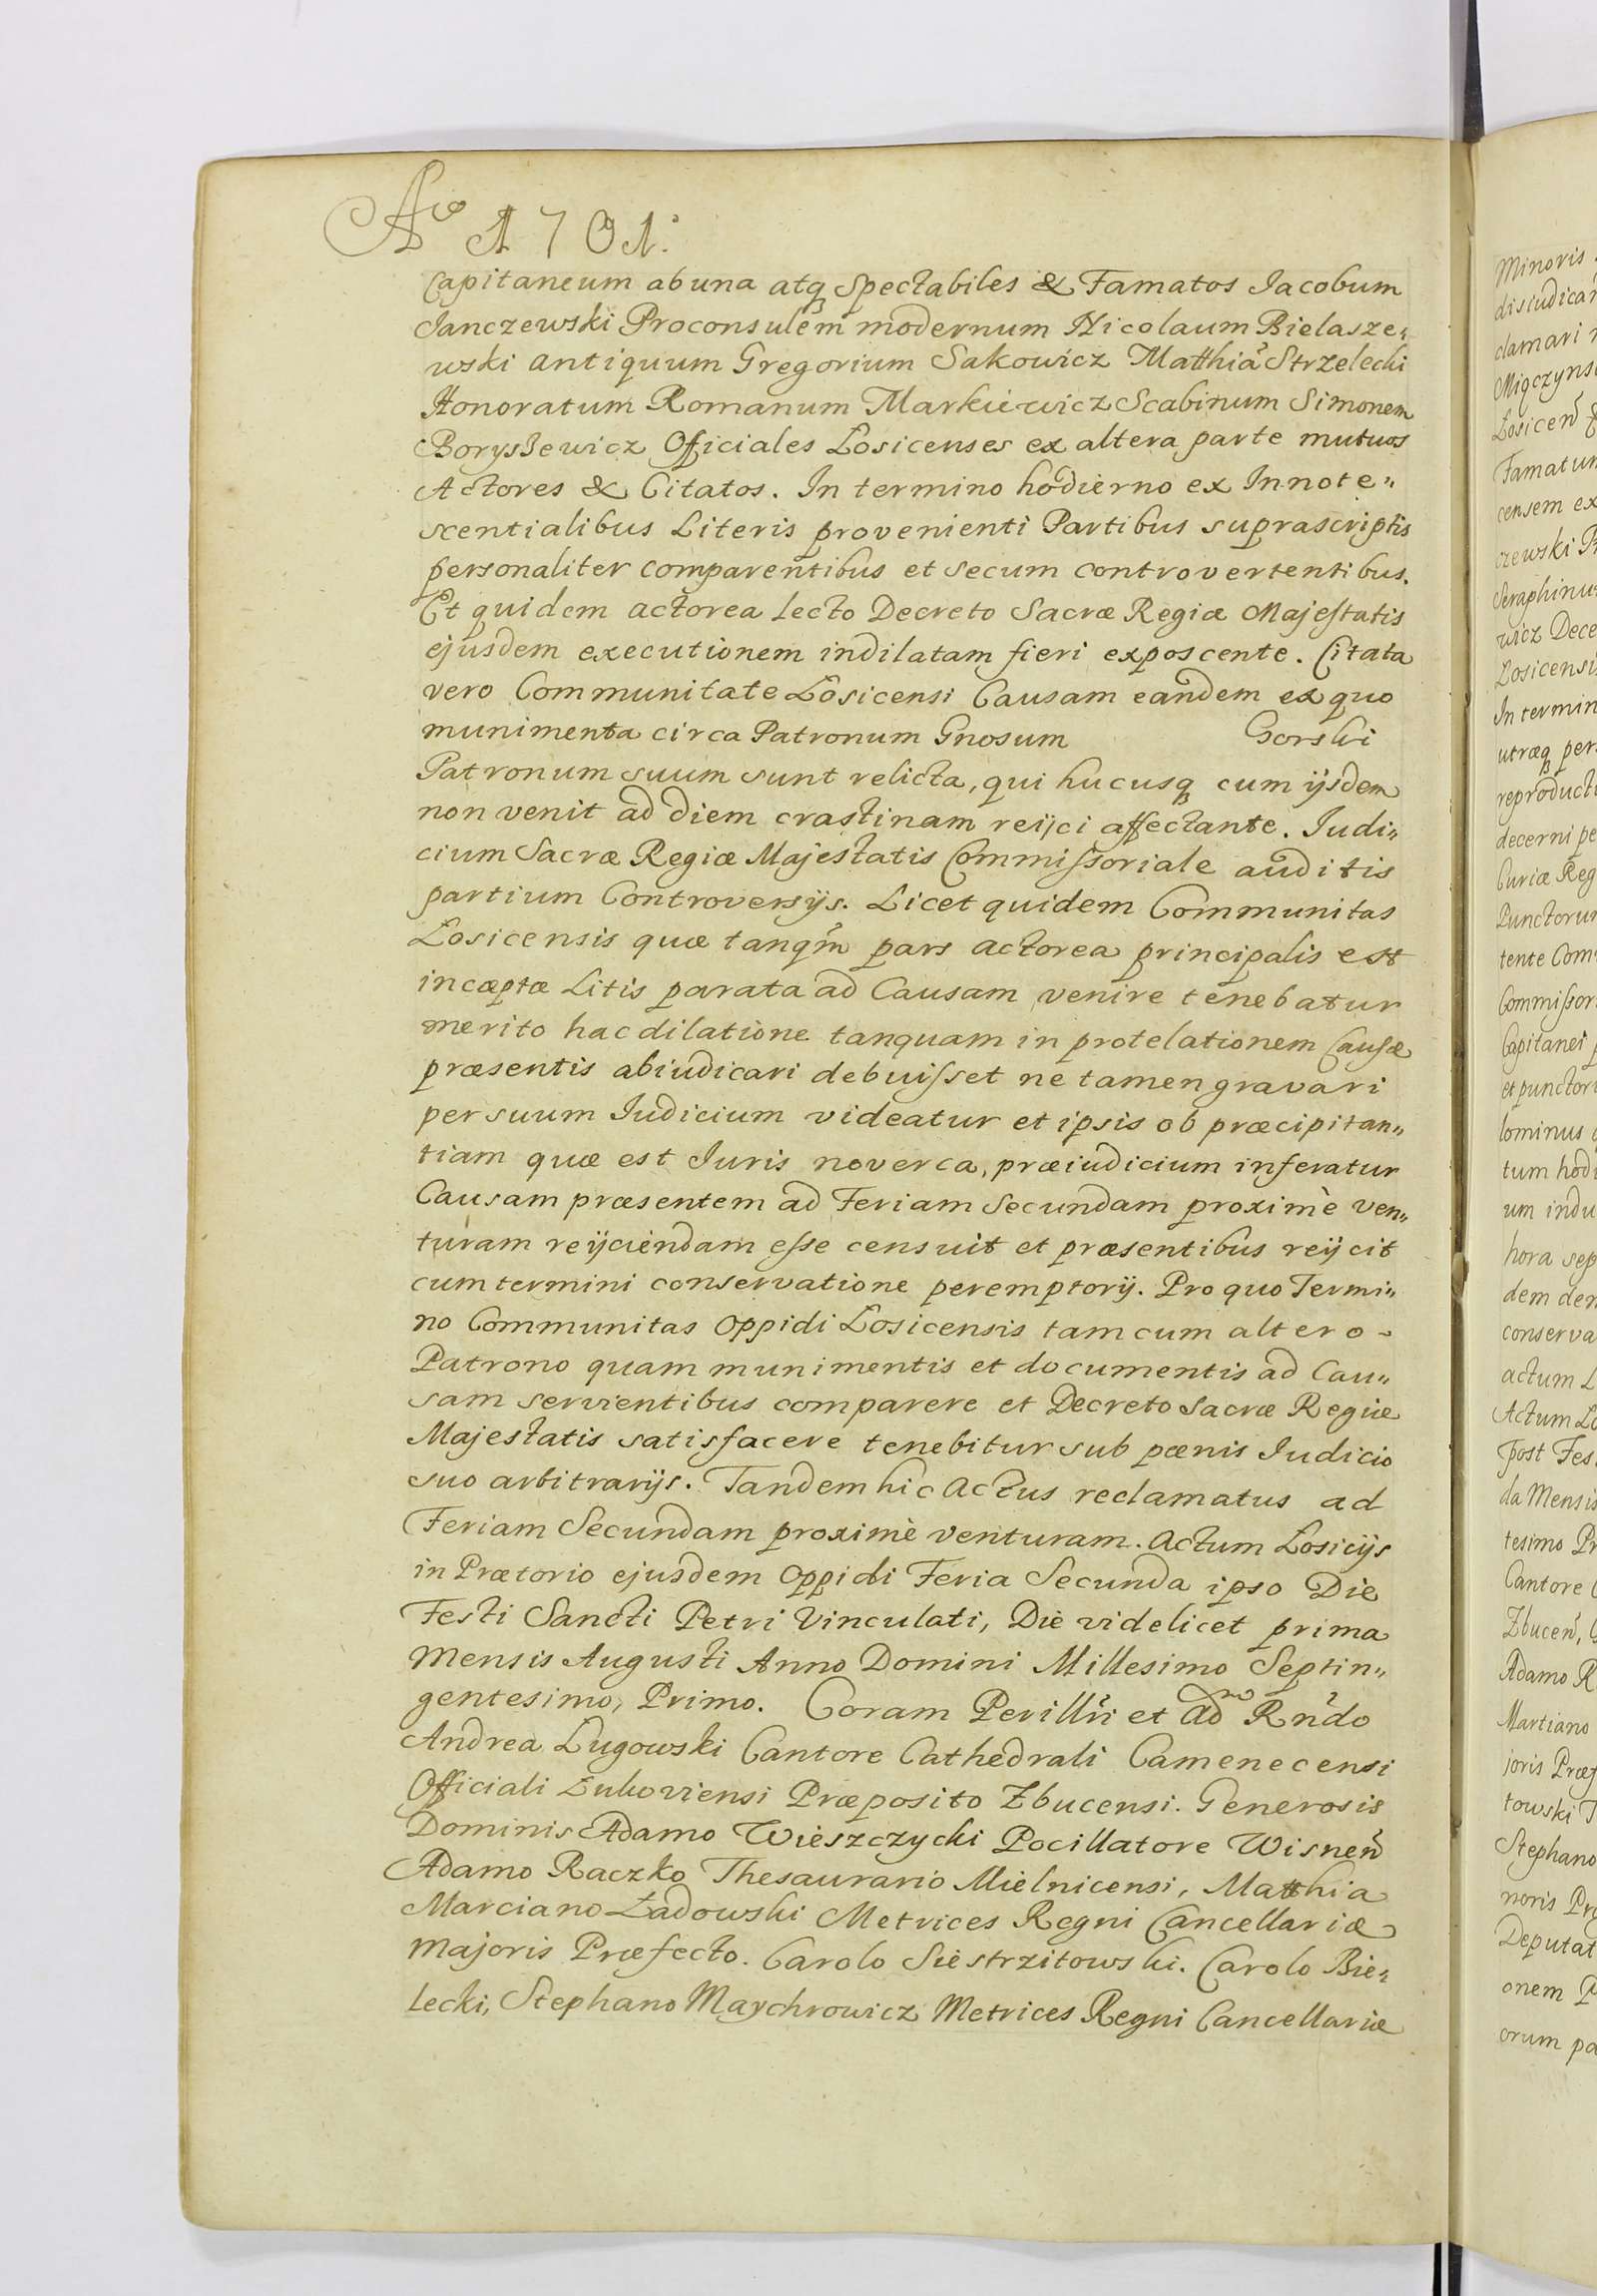 Aō 1701.
Capitaneum ab una atq Spectabiles & Famatos Iacobum
Ianczewski Proconsulem modernum Nicolaum Bielasze„
wski antiquum Gregorium Sakowicz Matthiã Strzelecki
Honoratum Romanum Markiewicz Scabinum Simonem
Borysiewicz Officiales Łosicenses ex altera parte mutuos
Actores & Citatos. In termino hodierno ex Innote„
scentialibus Literis provenienti Partibus suprascriptis
personaliter comparentibus et secum controvertentibus.
Et quidem actorea lecto Decreto Sacræ Regiæ Majestatis
ejusdem executionem indilatam fieri exposcente. Citata
vero Communitate Łosicensi Causam eandem ex quo
munimenta circa Patronum Gnosum Gorski
Patronum suum sunt relicta, qui hucusq cum ijsdem
non venit ad diem crastinam reijci affectante. Iudi„
cium Sacræ Regiæ Majestatis Commissoriale auditis
partium Controversijs. Licet quidem Communitas
Łosicensis quæ tanqm̃ pars actorea principalis est
incæptæ Litis parata ad Causam venire tenebatur
merito hac dilatione tanquam in protelationem Causæ
præsentis abiudicari debuisset ne tamen gravari
per suum Iudicium videatur et ipsis ob præcipitan„
tiam quæ est Iuris noverca, præiudicium inferatur
Causam præsentem ad Feriam Secundam proximè ven„
turam reijciendam esse censuit et præsentibus reijcit
cum termini conservatione peremptorij. Pro quo Termi„
no Communitas Oppidi Łosicensis tam cum altero -
Patrono quam munimentis et documentis ad Cau„
sam servientibus comparere et Decreto Sacræ Regiæ
Majestatis satisfacere tenebitur sub pœnis Iudicio
suo arbitrarijs. Tandem hic Actus reclamatus ad
Feriam Secundam proximè venturam. Actum Łosicijs
in Prætorio ejusdem Oppidi Feria Secunda ipso Die
Festi Sancti Petri Vinculati, Die videlicet prima
Mensis Augusti Anno Domini Millesimo Septin„
gentesimo, Primo. Coram Perillr̃i et Adm̃ Rñdo
Andrea Ługowski Cantore Cathedrali Camenecensi
Officiali Łukoviensi Præposito Zbucensi. Generosis
Dominis Adamo Wieszczycki Pocillatore Wisneñ
Adamo Raczko Thesaurario Mielnicensi, Matthia
Marciano Ładowski Metrices Regni Cancellariæ
Majoris Præfecto. Carolo Siestrzitowski. Carolo Bie„
lecki, Stephano Maychrowicz Metrices Regni Cancellariæ